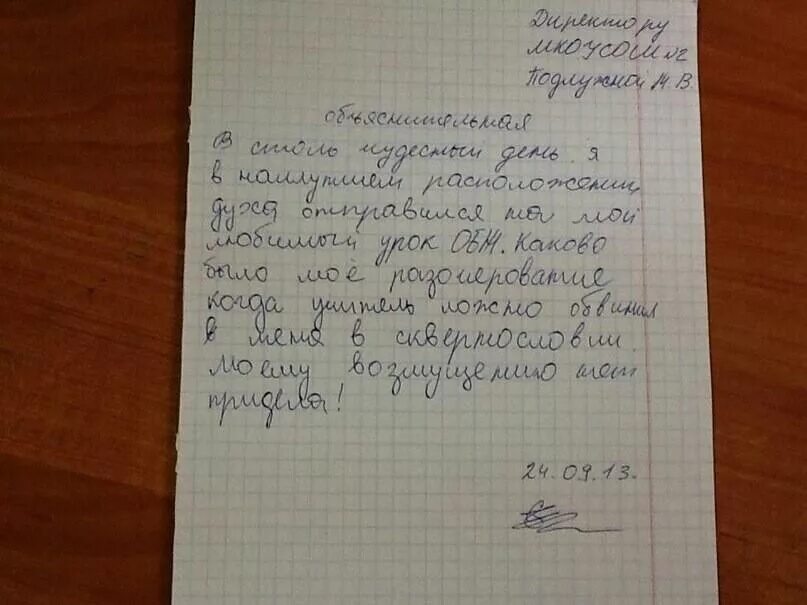 Директору
МКОУСОШ №2
Подлужной М.В.
объяснительная
В столь чудесный день я
в наилучшем расположении
духа отправился на мой
любимый урок ОБЖ. Каково
было моё разочерование
когда учитель ложно обвинил
в меня в сквернословии.
Моему возмущению нет
придела!
24.09.13.